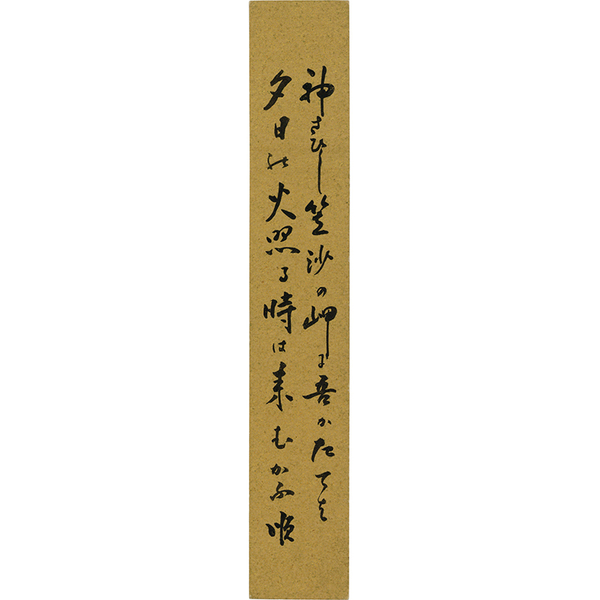 神さひし笠沙の岬に吾かたては
夕日の火照る時は来むかふ 順